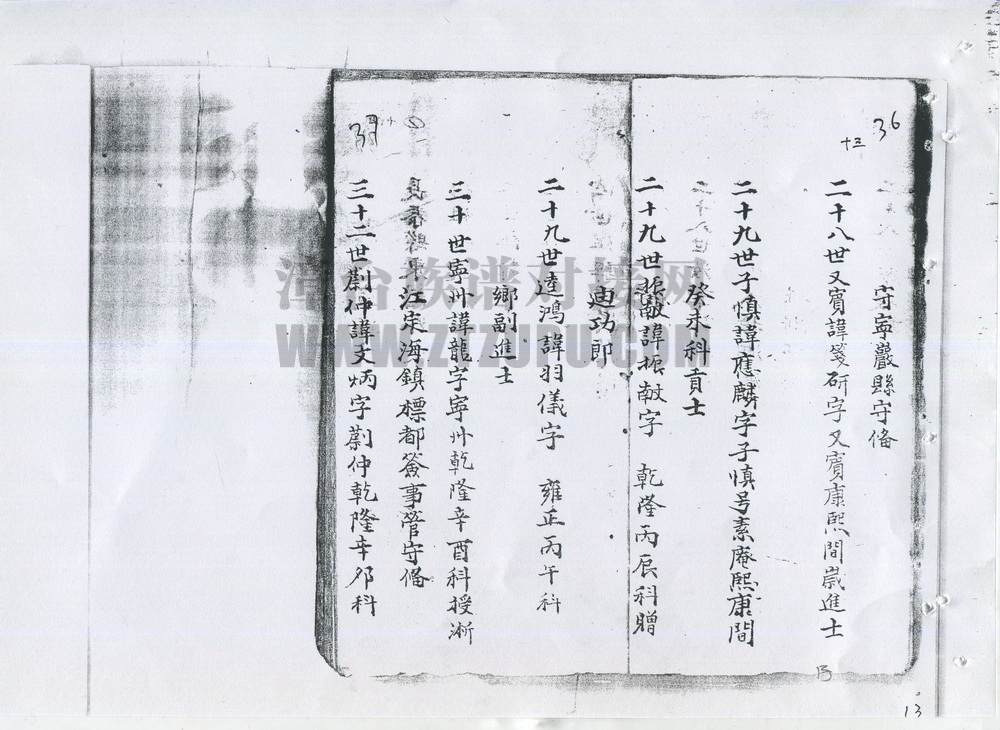 36
十三
守寧巖縣守俻
二十八世又賓諱箋研字又賓康熙間嵗進士
二十九世子慎諱應麟字子慎号素庵熙康間
癸未科貢士
二十九世振敲諱振敲字 乾隆丙辰科贈
廸功郎
二十九世逵鴻諱羽儀字 雍正丙午科
鄉副進士
三十世寧州諱龍字寧州乾隆辛酉科授浙
江定海鎮標都簽事管守俻
三十二世蔚仲諱文炳字蔚仲乾隆辛夘科
漳台族谱对接网
WWW.ZTZUPU.COM
13
13